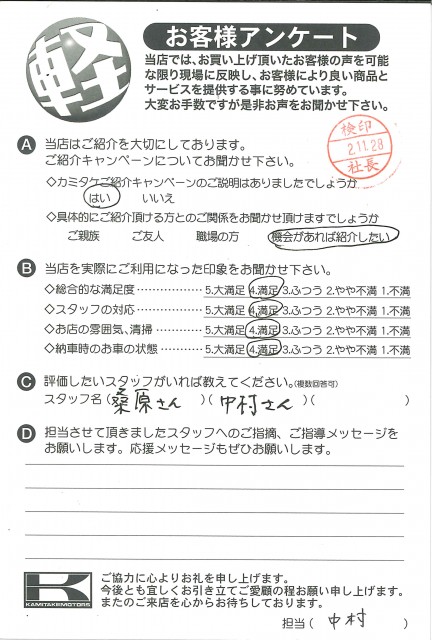 軽
お客様アンケート
当店では、お買い上げ頂いたお客様の声を可能
な限り現場に反映し、お客様により良い商品と
サービスを提供する事に努めています。
大変お手数ですが是非お声をお聞かせ下さい。
検印
2.11.28
社長
A 当店はご紹介を大切にしております。
ご紹介キャンペーンについてお聞かせ下さい。
◇カミタケご紹介キャンペーンのご説明はありましたでしょうか
はい いいえ
◇具体的にご紹介頂ける方とのご関係をお聞かせ頂けますでしょうか
ご親族 ご友人 職場の方 機会があれば紹介したい
B 当店を実際にご利用になった印象をお聞かせ下さい。
◇総合的な満足度 ……………… 5.大満足 4.満足 3.ふつう 2.やや不満 1.不満
◇スタッフの対応 ……………… 5.大満足 4.満足 3.ふつう 2.やや不満 1.不満
◇お店の雰囲気、清掃 ………… 5.大満足 4.満足 3.ふつう 2.やや不満 1.不満
◇納車時のお車の状態 ………… 5.大満足 4.満足 3.ふつう 2.やや不満 1.不満
C 評価したいスタッフがいれば教えてください。(複数回答可)
スタッフ名 ( 桑原さん )( 中村さん )( )
D 担当させて頂きましたスタッフへのご指摘、ご指導メッセージを
お願いします。応援メッセージもぜひお願いします。
K
KAMITAKEMOTORS
ご協力に心よりお礼を申し上げます。
今後とも宜しくお引き立てご愛顧の程お願い申し上げます。
またのご来店を心からお待ちしております。
担当 ( 中村 )